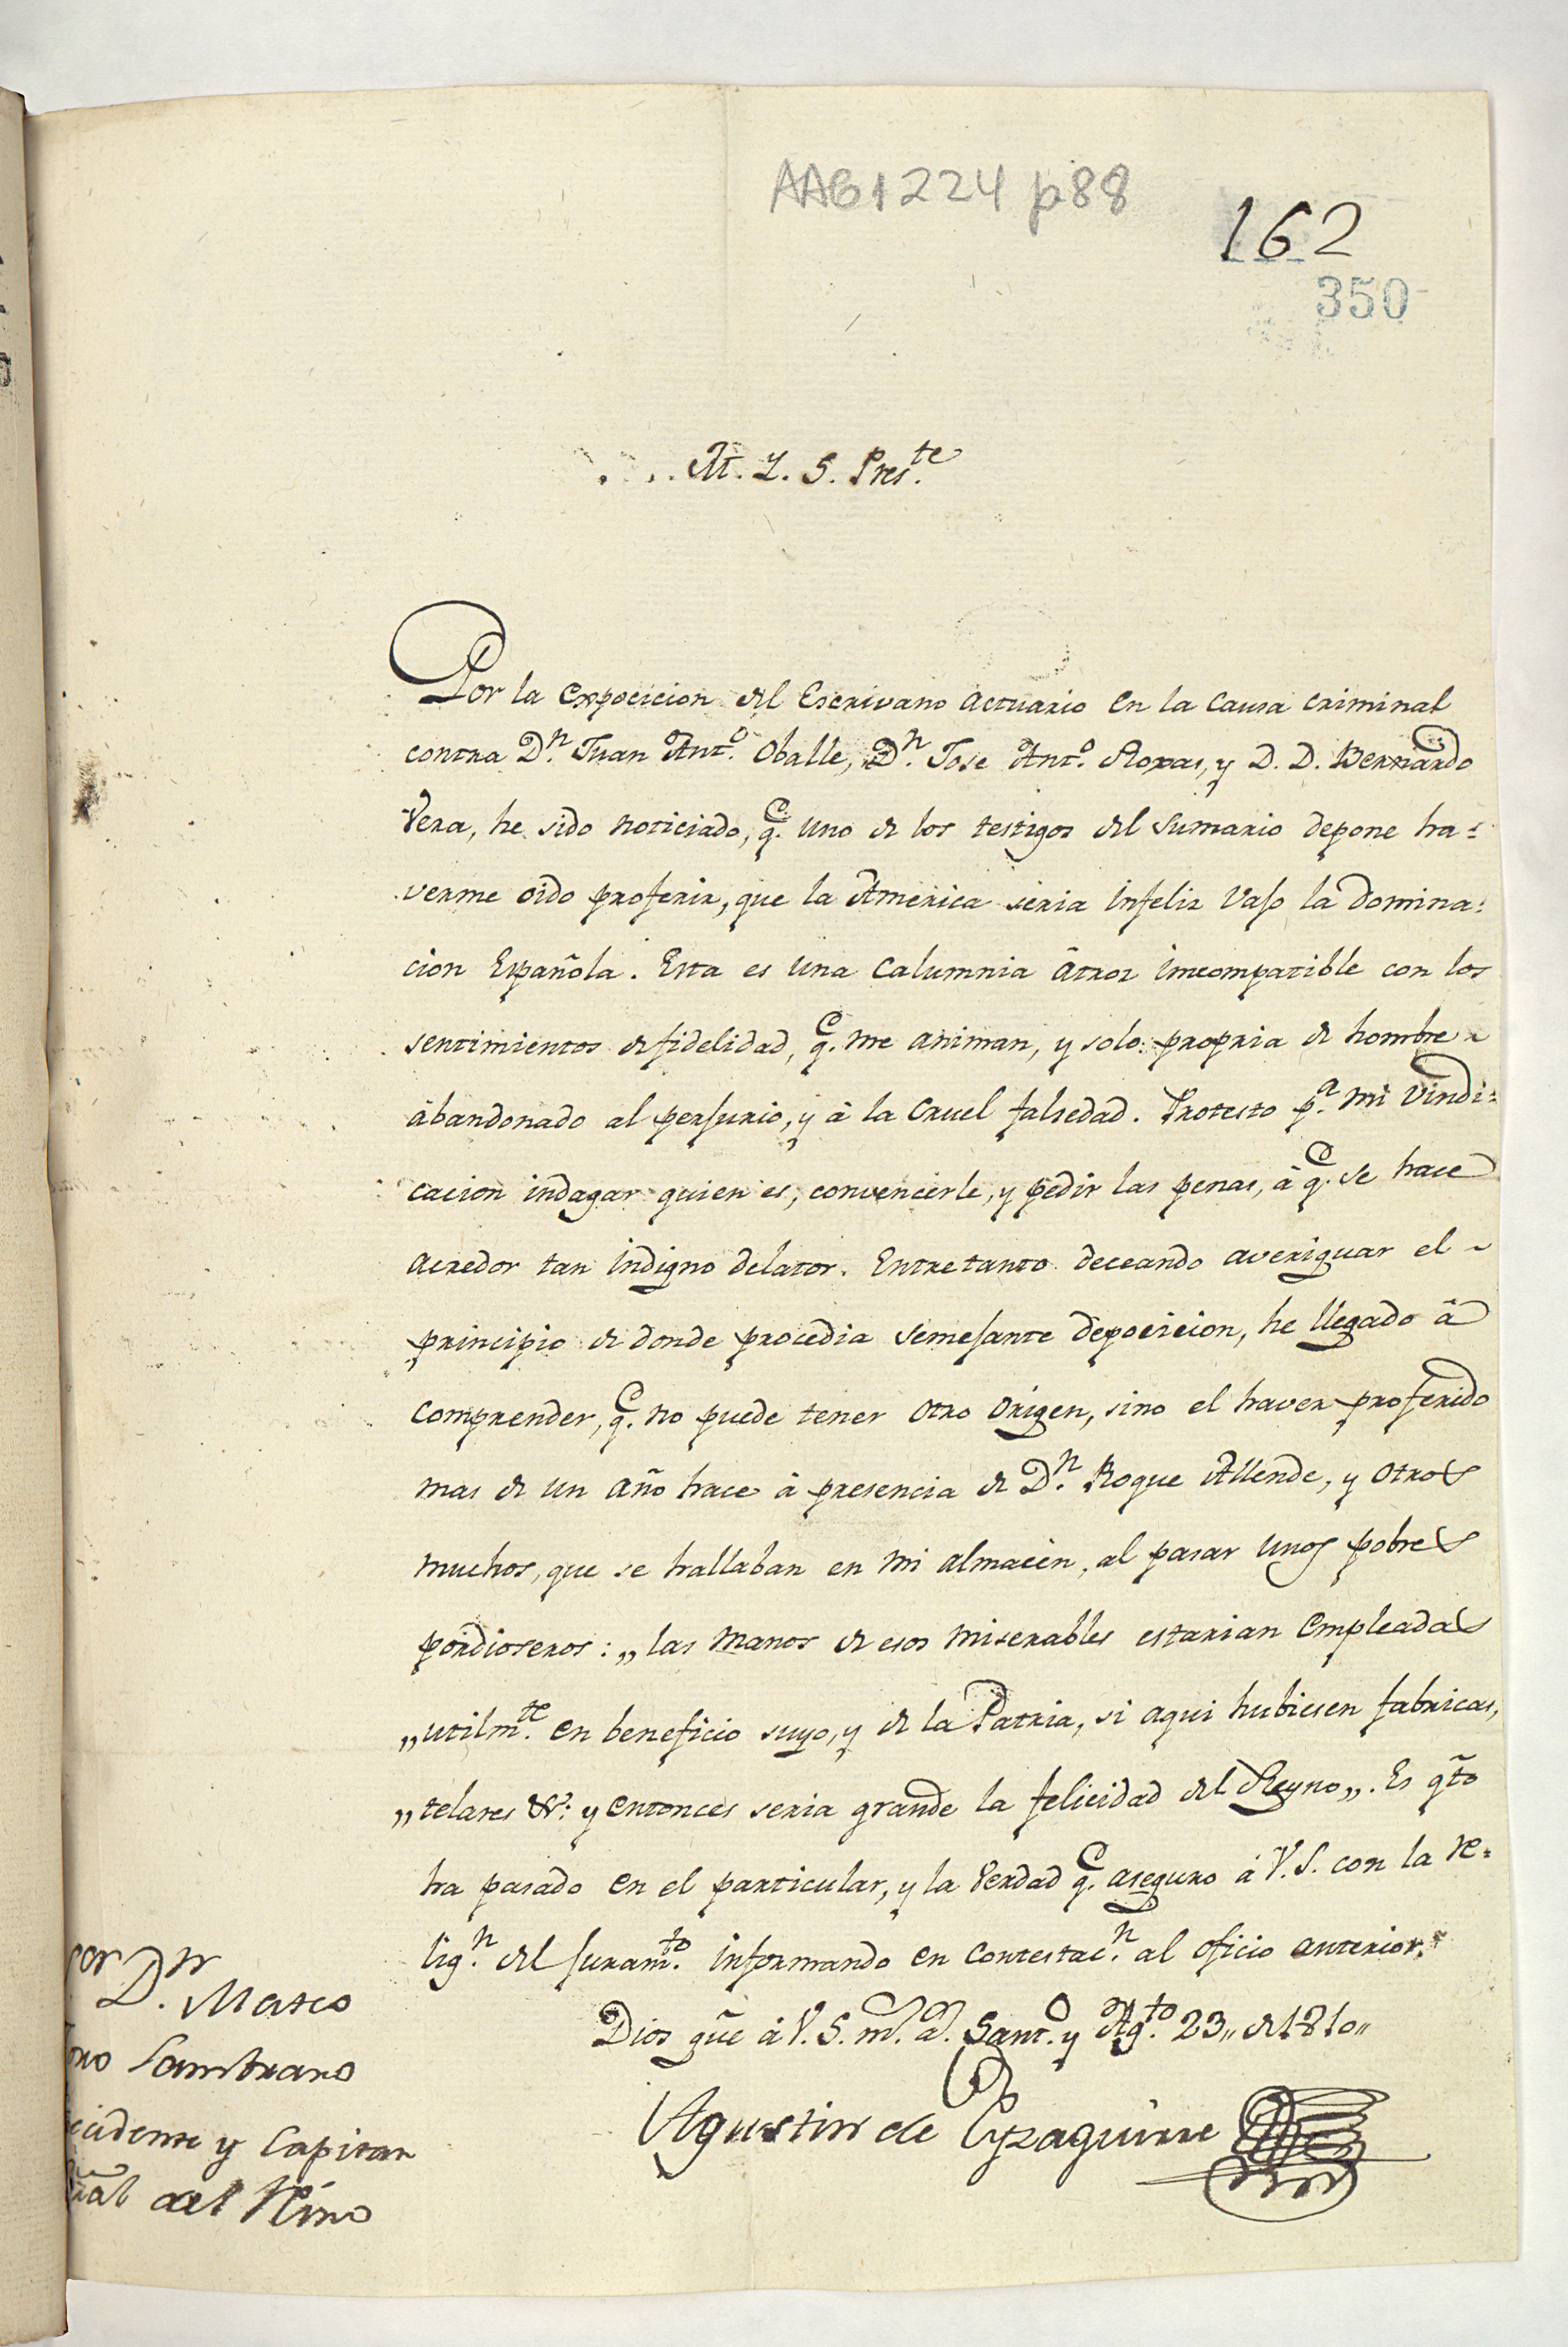 AAG1224 p88
162
350
M. Y. S. Pres.te
Por la expocicion del Escrivano actuario en la causa criminal
contra D.n Juan Ant.o Oballe, D.n Jose Ant.o Roxas, y D. D. Bernardo
Vera, he sido noticiado, q.e uno de los testigos del sumario depone ha=
verme oido proferir, que la America seria infeliz vajo la domina=
cion Española. Esta es una calumnia âtroz imcompatible con los
sentimientos de fidelidad, q.e me animan, y solo propria de hombre
âbandonado al perjurio, y â la cruel falsedad. Protesto p.a mi vindi=
cacion indagar quien es, convencerle, y pedir las penas, â q.e se hace
acredor tan indigno delator. Entretanto deceando averiguar el
principio de donde procedia semejante depocicion, he llegado â
comprender, q.e no puede tener otro origen, sino el haver proferido
mas de un año hace â presencia de D.n Roque Allende, y otros
muchos, que se hallaban en mi almacèn, al pasar unos pobres
pordioseros: „las manos de esos miserables estarian empleadas
„utilm.te en beneficio suyo, y de la Patria, si aqui hubiesen fabricas,
„telares &: y entonces seria grande la felicidad del Reyno„. Es q̃to
ha pasado en el particular, y la verdad q.e aseguro â V.S. con la re=
lig.n del juram.to informando en contestac.n al oficio anterior.
Dios gũe â V.S. m.s a.s Sant.o y Ag.to 23„ de 1810„
Agustin de Eyzaguirre
D.n Mateo
Sambrano
y Capitan
del Rino